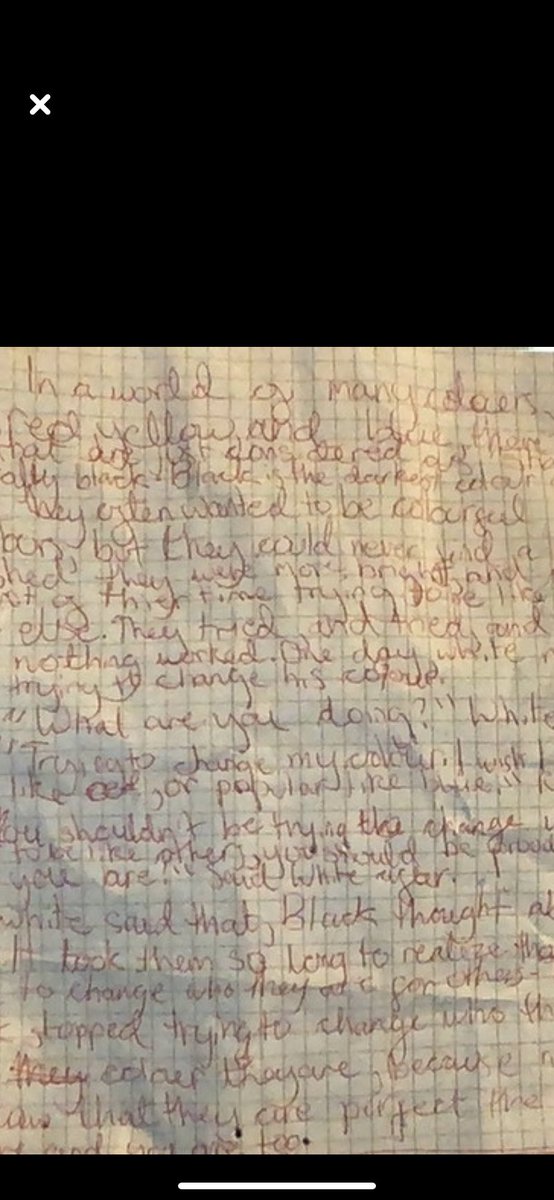 In a world of many colours
red, yellow, and blue, there
that are not considered as
ally black. Black is the darkest colour
They often wanted to be colourful
born but they could never find a
they were more bright, and
of thier time trying to be like
else. They tried, and tried, and
nothing worked. One day white
trying to change his colour.
"What are you doing?" White
"Trying to change my colour. I wish I
like red, or popular like blue."
You shouldn't be trying the change
to be like others, you should be proud
you are!" said White
white said that, Black thought
It took them so long to realize tha
to change who they are for others
stopped trying to change who th
they colour they are, Because
that they are purfect the
and you are too.